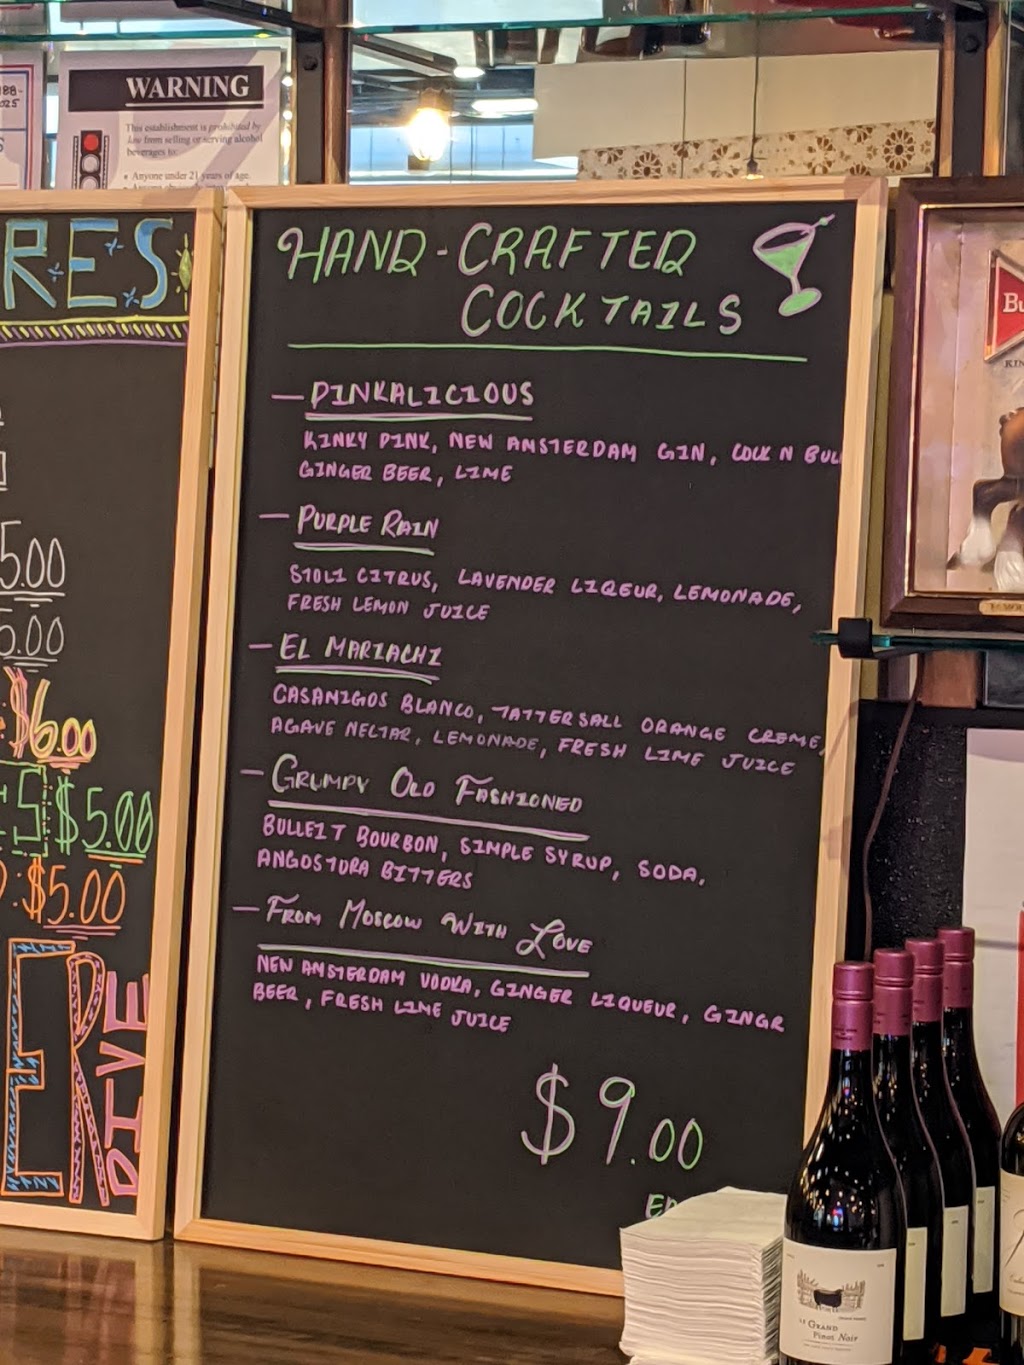 WARNING
This establishment is prohibited by
law from selling or serving alcohol
beverages to:
• Anyone under 21 years of age.
RES
5.00
5.00
$6.00
$5.00
:$5.00
ER
DIVE
HAND-CRAFTED
COCKTAILS
— PINKALICIOUS
KINKY PINK, NEW AMSTERDAM GIN, COCK N BULL
GINGER BEER, LIME
— PURPLE RAIN
STOLI CITRUS, LAVENDER LIQEUR, LEMONADE,
FRESH LEMON JUICE
— EL MARIACHI
CASAMIGOS BLANCO, TATTERSALL ORANGE CREME,
AGAVE NECTAR, LEMONADE, FRESH LIME JUICE
— GRUMPY OLD FASHIONED
BULLEIT BOURBON, SIMPLE SYRUP, SODA,
ANGOSTURA BITTERS
— FROM MOSCOW WITH LOVE
NEW AMSTERDAM VODKA, GINGER LIQUEUR, GINGR
BEER, FRESH LIME JUICE
$9.00
LE GRAND
Pinot Noir